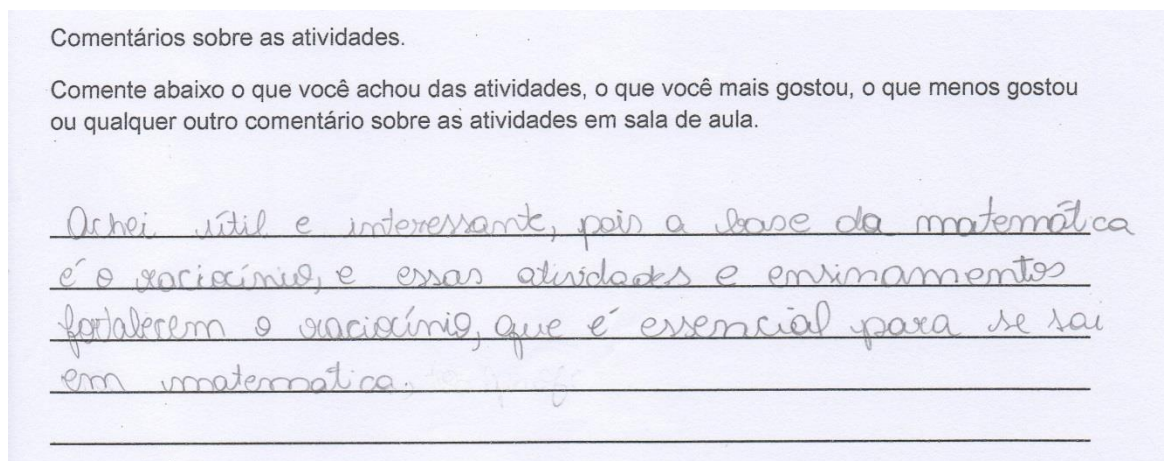 Comentários sobre as atividades.
Comente abaixo o que você achou das atividades, o que você mais gostou, o que menos gostou
ou qualquer outro comentário sobre as atividades em sala de aula.
Achei útil e interessante, pois a base da matemática
é o raciocínio, e essas atividades e ensinamentos
fortalecem o raciocínio, que é essencial para se sai
em matematica.